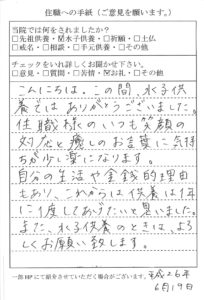 住職への手紙(ご意見を願います。)
当院では何をされましたか?
□先祖供養・☒水子供養・□祈願・□土仏
□戒名・□相談・□手元供養・□その他
チェックをいれ詳しくお聞かせ下さい。
□意見・□質問・□苦情・☒お礼・□その他
こんにちは。この間、水子供
養ではありがとうございました。
住職様の、いつも笑顔の
対応と癒しのお言葉に気持
ちが少し楽になります。
自分の生活や金銭的理由
もあり、これからは供養は年
に1度してあげたいと思いました。
また、水子供養のときは、よろ
しくお願い致します。
一部HPにて紹介をさせていただく場合がございます。
平成26年
6月19日